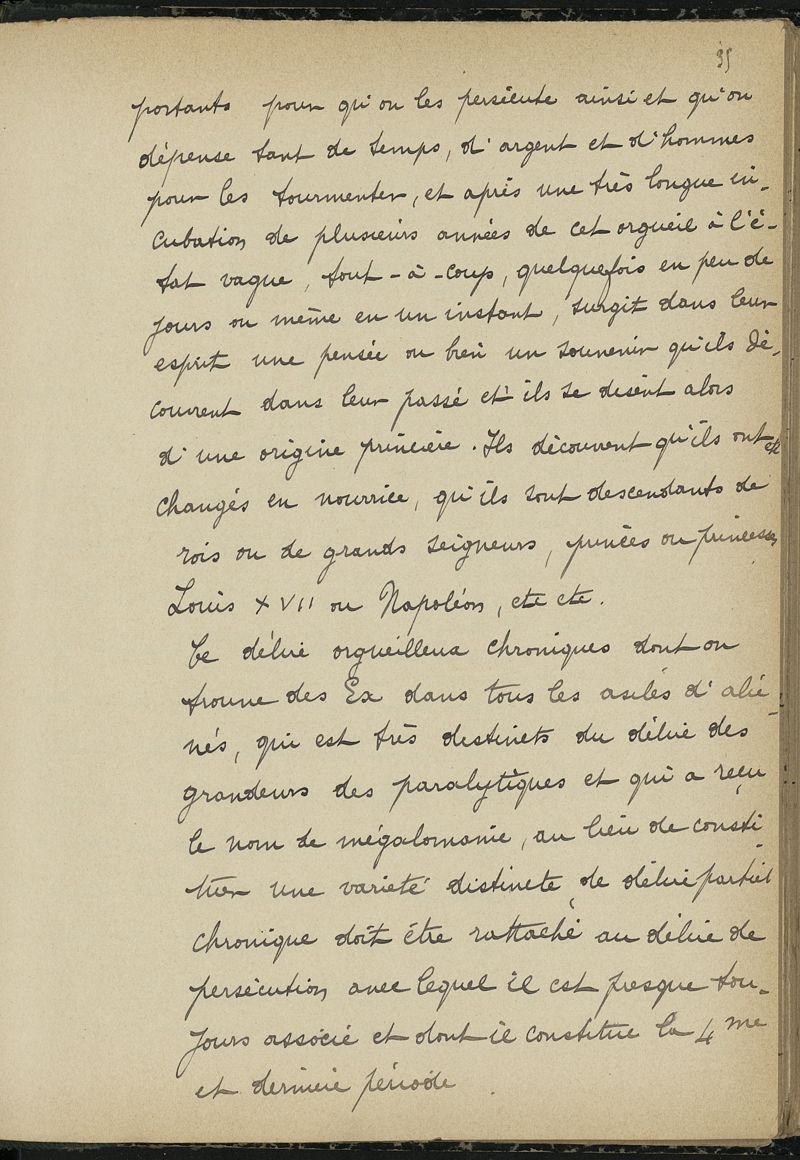 35
portants pour qu'on les persécute ainsi et qu'on
dépense tant de temps, d'argent et d'hommes
pour les tourmenter, et après une très longue in-
cubation de plusieurs années de cet orgueil à l'é-
tat vague, tout-à-coup, quelquefois en peu de
jours ou même en un instant, surgit dans leur
esprit une pensée ou bien un souvenir qu'ils dé-
couvrent dans leur passé et ils se disent alors
d'une origine princière. Ils découvrent qu'ils ont été
changés en nourrice, qu'ils sont descendants de
rois ou de grands seigneurs, princes ou princesses
Louis XVII ou Napoléon, etc etc.
Ce délire orgueilleux chroniques dont on
trouve des Ex dans tous les asiles d'alié-
nés, qui est très distincts du délire des
grandeurs des paralytiques et qui a reçu
le nom de mégalomanie, au lieu de consti-
tuer une varieté distincte, de délire partiel
chronique doit être rattaché au délire de
persécution avec lequel il est presque tou-
jours associé et dont il constitue la 4me
et dernière période.